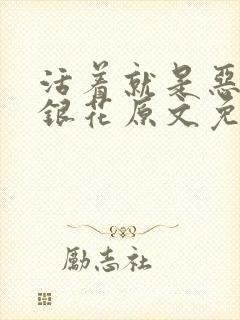 活着就是恶
銀花原文免
勵志社